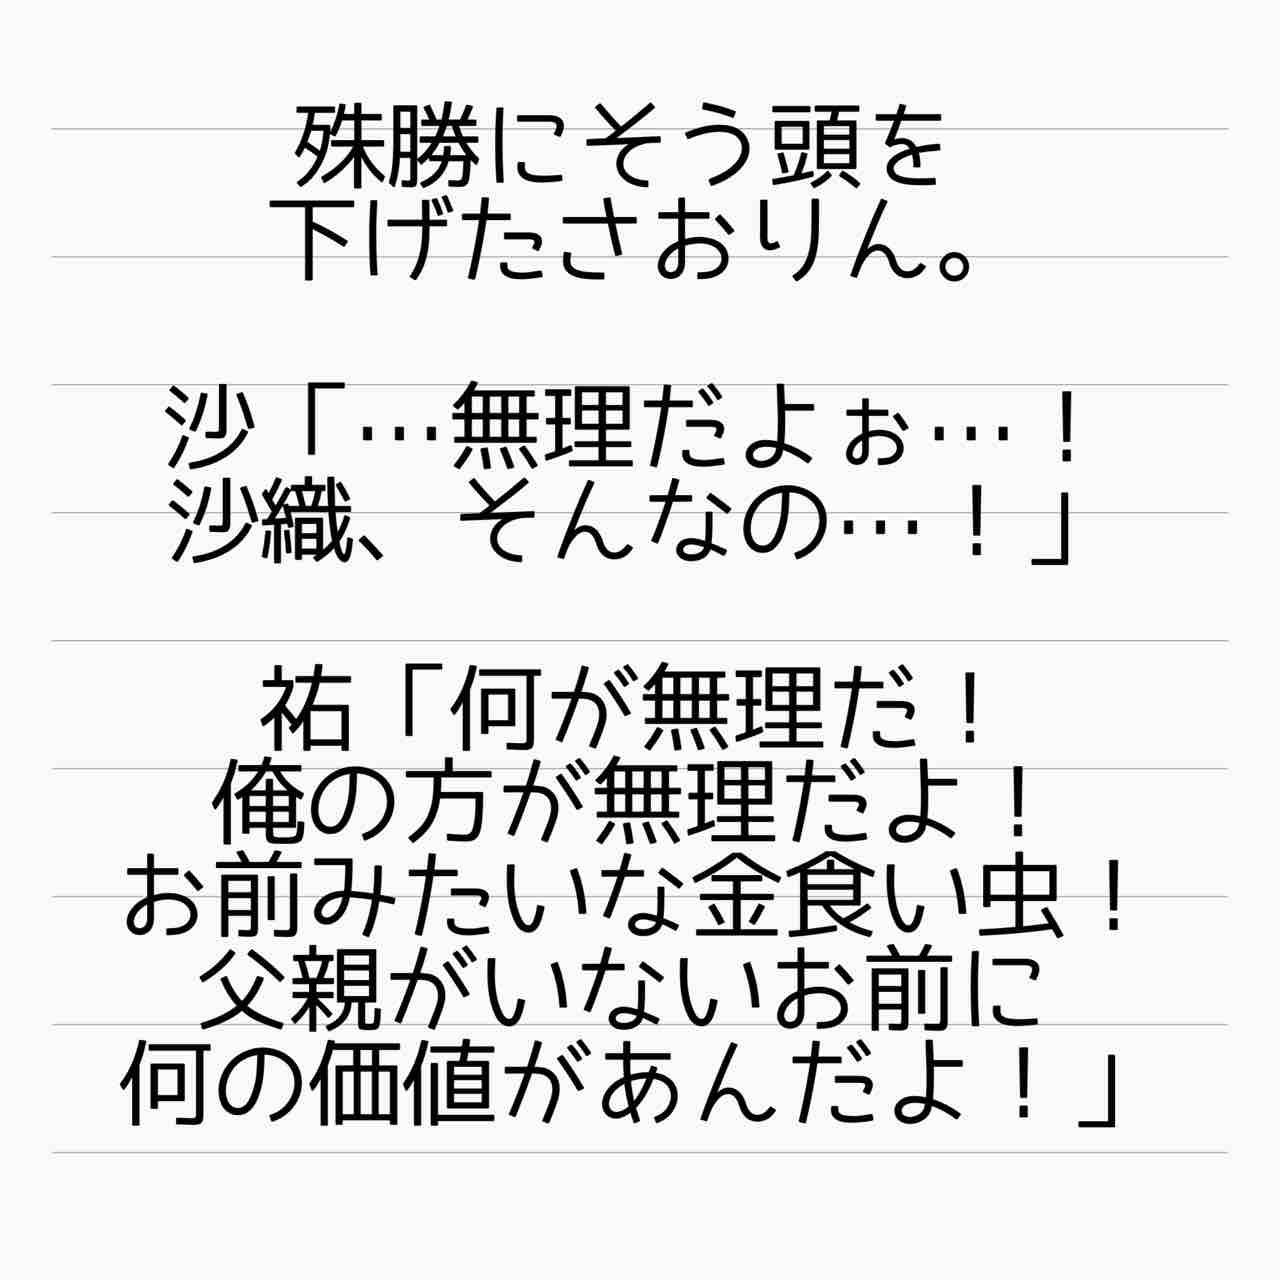 殊勝にそう頭を
下げたさおりん。
沙「…無理だよぉ…！
沙織、そんなの…！」
祐「何が無理だ！
俺の方が無理だよ！
お前みたいな金食い虫！
父親がいないお前に
何の価値があんだよ！」